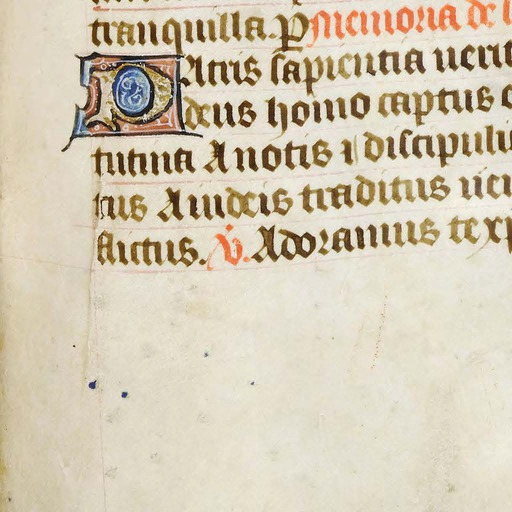 tranquilla. P Memoria de
Patris sapientia verit
deus homo captus
tutina A notis ⁊ discipuli
tus A iudeis traditus
flictus. V. Adoramus te xp